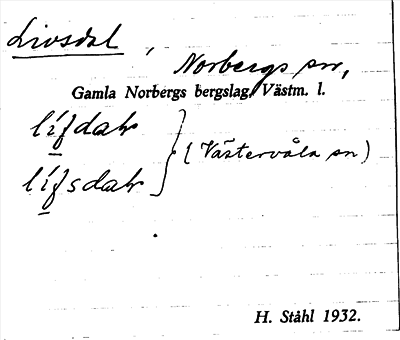 Livsdal,
Norbergs sn,
Gamla Norbergs bergslag, Västm. l.
lífdaɫ
lífsdaɫ
(Västervåla sn)
H. Ståhl 1932.